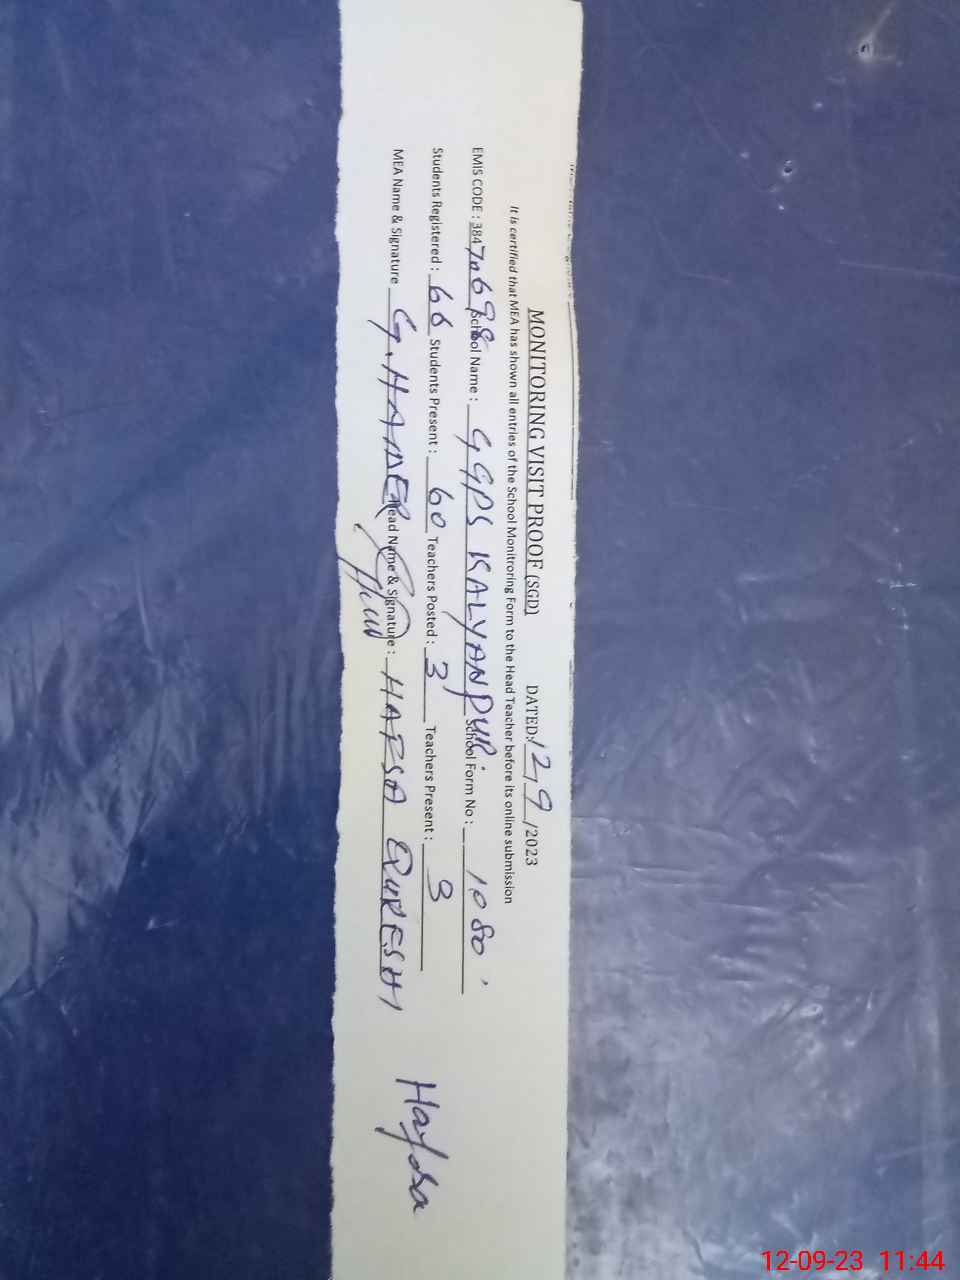 MONITORING VISIT PROOF (SGD) DATED: 12/9/2023
It is certified that MEA has shown all entries of the School Monitroring Form to the Head Teacher before its online submission
EMIS CODE : 384 School Name : GGPS KALYANPUR. School Form No : 1080
Students Registered : 66 Students Present : 60 Teachers Posted : 3 Teachers Present : 3
MEA Name & Signature G. HAIDER Head Name & Signature : HAFSA QURESHI Hafsa
12-09-23 11:44